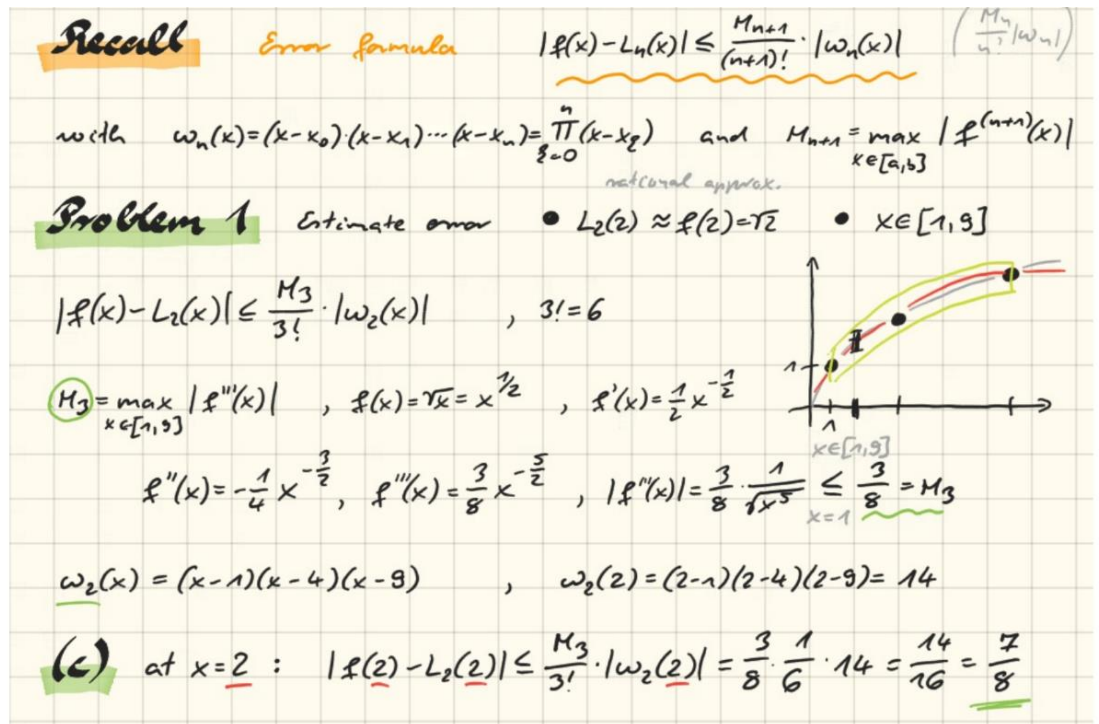 Recall Error formula |f(x)-Lₙ(x)| ≤ Mₙ₊₁/(n+1)! · |ωₙ(x)| (Mₙ/n! |ωₙ|)
with ωₙ(x)=(x-x₀)·(x-x₁)···(x-xₙ)= ∏ₖ₌₀ⁿ (x-xₖ) and Mₙ₊₁ = max x∈[a,b] |f⁽ⁿ⁺¹⁾(x)|
rational approx.
Problem 1 Estimate error • L₂(2) ≈ f(2)=√2 • x∈[1,9]
|f(x)-L₂(x)| ≤ M₃/3! · |ω₂(x)| , 3!=6
M₃ = max x∈[1,9] |f'''(x)| , f(x)=√x = x^(1/2) , f'(x)= 1/2 x^(-1/2)
1
1
x∈[1,9]
f''(x)= -1/4 x^(-3/2), f'''(x)= 3/8 x^(-5/2) , |f'''(x)|= 3/8 · 1/√x⁵ ≤ 3/8 = M₃
x=1
ω₂(x) = (x-1)(x-4)(x-9) , ω₂(2)=(2-1)(2-4)(2-9)= 14
(c) at x=2 : |f(2)-L₂(2)| ≤ M₃/3! · |ω₂(2)| = 3/8 · 1/6 · 14 = 14/16 = 7/8